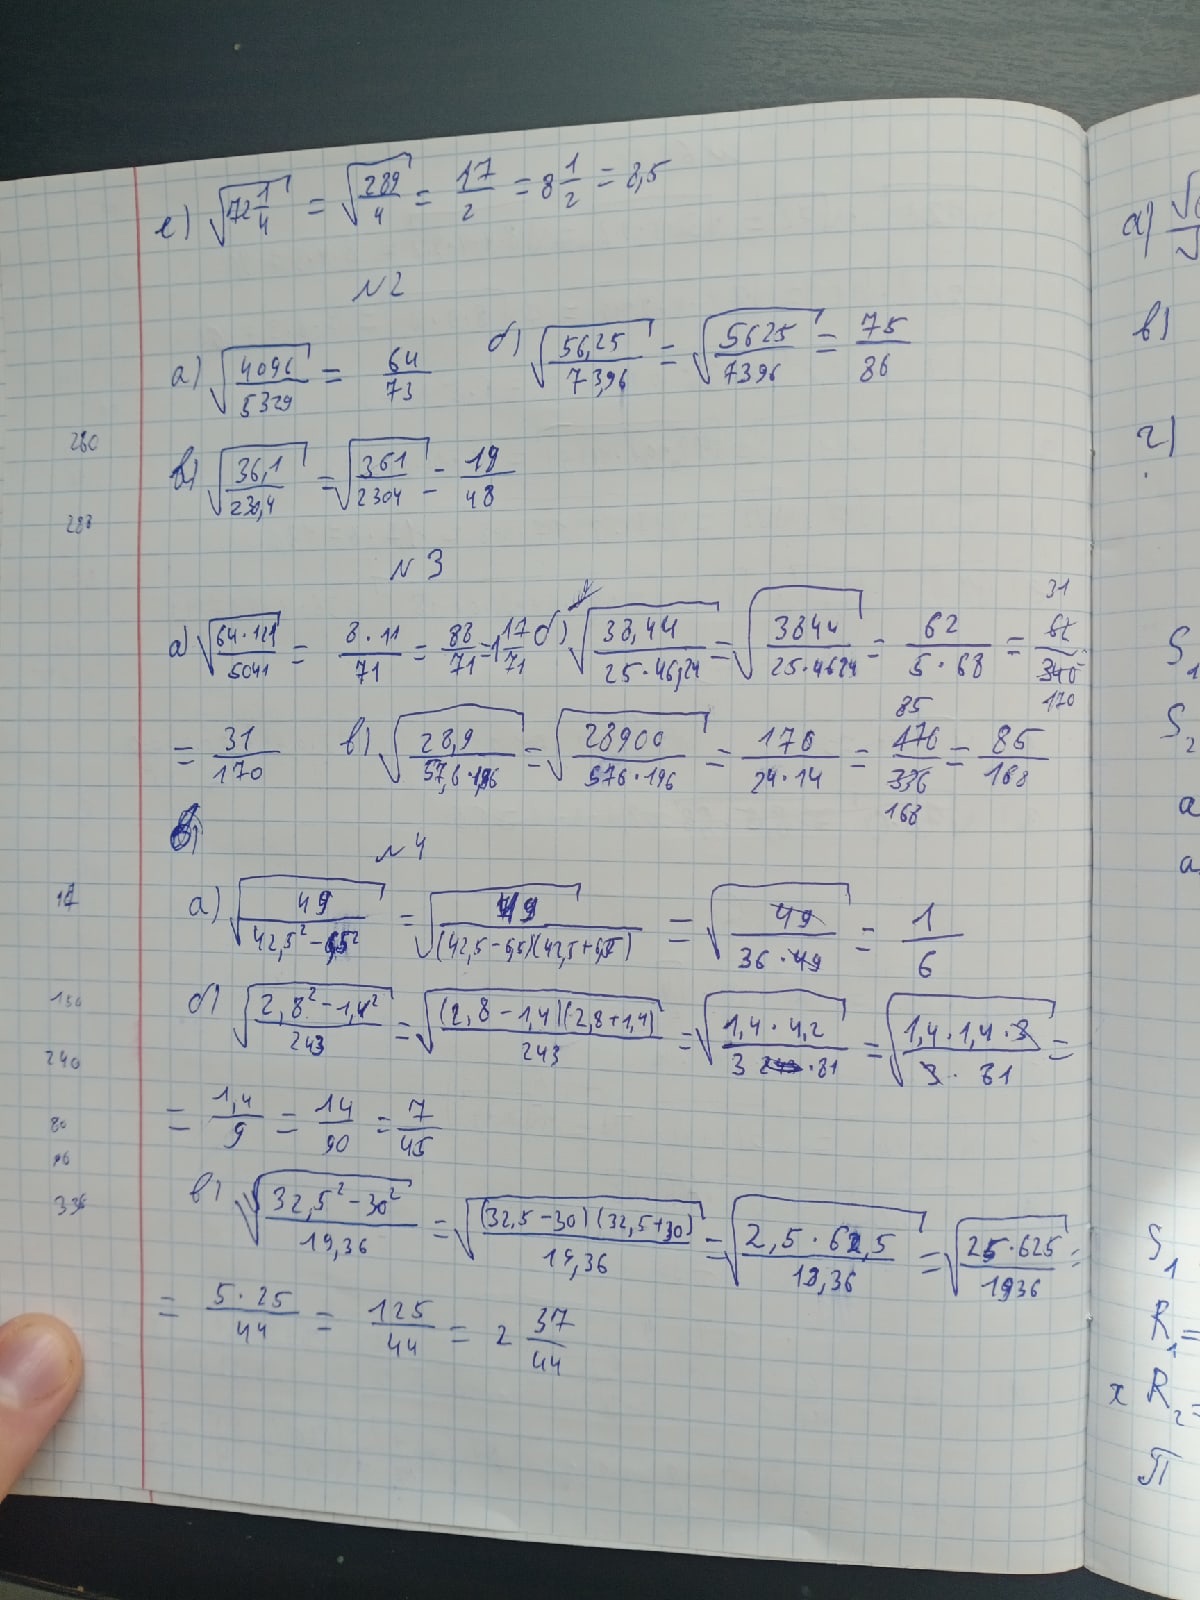 е) √(72 1/4) = √(289/4) = 17/2 = 8 1/2 = 8,5
№2
а) √(4096/5329) = 64/73 б) √(56,25/73,96) = √(5625/7396) = 75/86
в) √(36,1/230,4) = √(361/2304) = 19/48
№3
а) √(64·121/5041) = 8·11/71 = 88/71 = 1 17/71 б) √(38,44/25·46,24) = √(3844/25·4624) = 62/5·68 = 62/340 31 170
= 31/170 в) √(28,9/57,6·196) = √(28900/576·196) = 170/24·14 = 170/336 85 168 = 85/168
№4
а) √(49/42,5²-6,5²) = √(49/(42,5-6,5)(42,5+6,5)) = √(49/36·49) = 1/6
б) √(2,8²-1,4²/243) = √((2,8-1,4)(2,8+1,4)/243) = √(1,4·4,2/3·81) = √(1,4·1,4·3/3·81) =
= 1,4/9 = 14/90 = 7/45
в) √(32,5²-30²/19,36) = √((32,5-30)(32,5+30)/19,36) = √(2,5·62,5/19,36) = √(25·625/1936) =
= 5·25/44 = 125/44 = 2 37/44
280
288
240
80
96
336
а)
в)
г)
S₁
S₂
а
а
S₁
R₁=
x R₂=
π